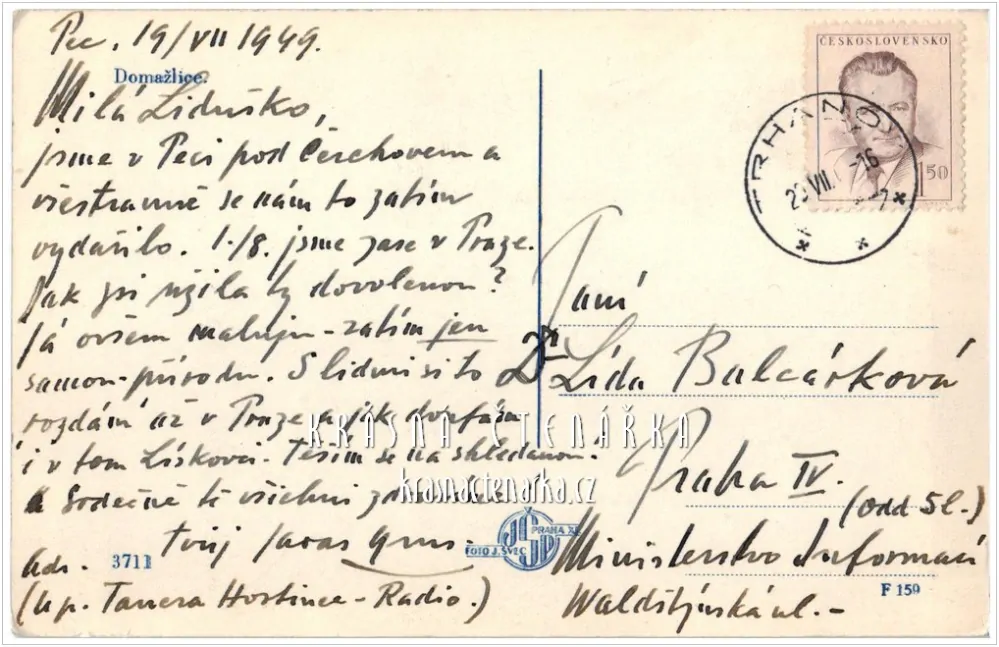 Pec. 19/VII 1949.
Domažlice.
Milá Liduško,
jsme v Peci pod Čerchovem a
všestranně se nám to zatím
vydařilo. 1./8. jsme zase v Praze.
Jak jsi užila ty dovolenou?
Já ovšem maluju - zatím jen
samou přírodu. S lidmi si to
rozdám až v Praze a jak doufám
i v tom Lískovci. Těším se na shledanou!
Srdečně tě všichni
Tvůj
Adr.
3711
(u p. Tauera Hostinec - Radio.)
ČESKOSLOVENSKO
1 50
TRHANOV
VII. -16
Paní
Dr Lída Balcárková
Praha IV.
(Odd Sl.)
Ministerstvo Informací
Waldštýnská ul. -
F 159
PRAHA XI
FOTO J. ŠVEC
KRÁSNÁ ČTENÁŘKA
krasnactenarka.cz